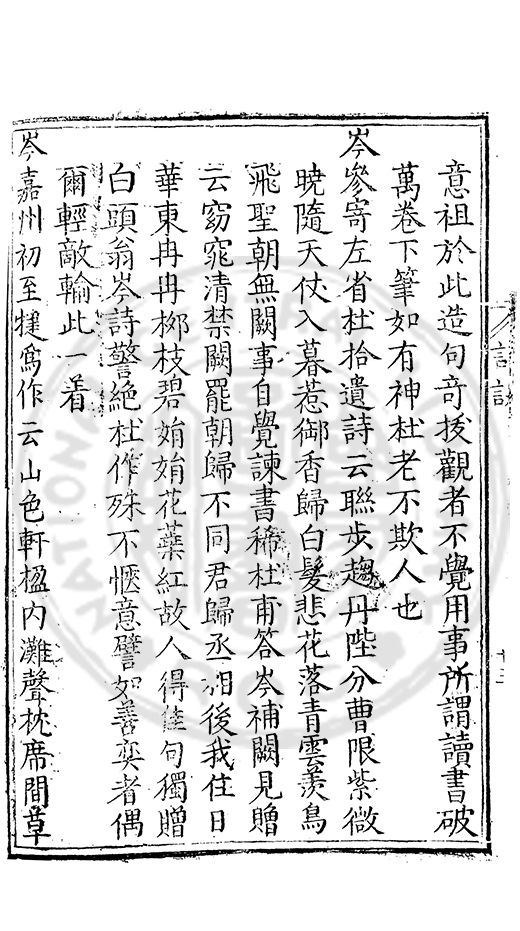 意祖於此造句竒拔觀者不覺用事所謂讀書破
萬卷下筆如有神杜老不欺人也
岑參寄左省杜拾遺詩云聯步趨丹陛分曹限紫微
曉隨天仗入暮惹御香歸白髮悲花落青雲羨鳥
飛聖朝無闕事自覺諫書稀杜甫答岑補闕見贈
云窈窕清禁闥罷朝歸不同君歸丞相後我住日
華東冉冉柳枝碧娟娟花蘂紅故人得佳句獨贈
白頭翁岑詩警絶杜作殊不愜意譬如善奕者偶
爾輕敵輸此一着
岑嘉州初至犍爲作云山色軒楹内灘聲枕席間草